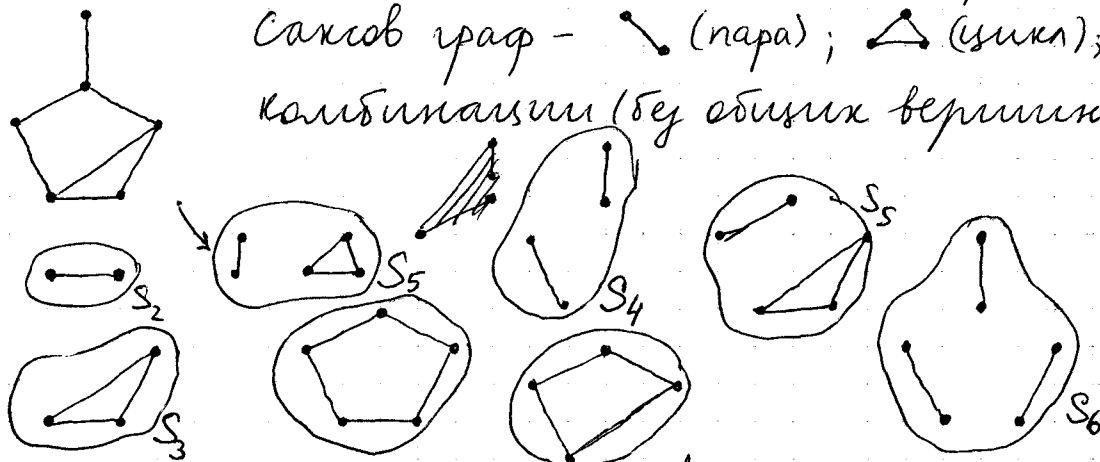 Саксов граф – (пара); (цикл);
комбинации (без общих вершин
S5
S2
S5
S4
S3
S6